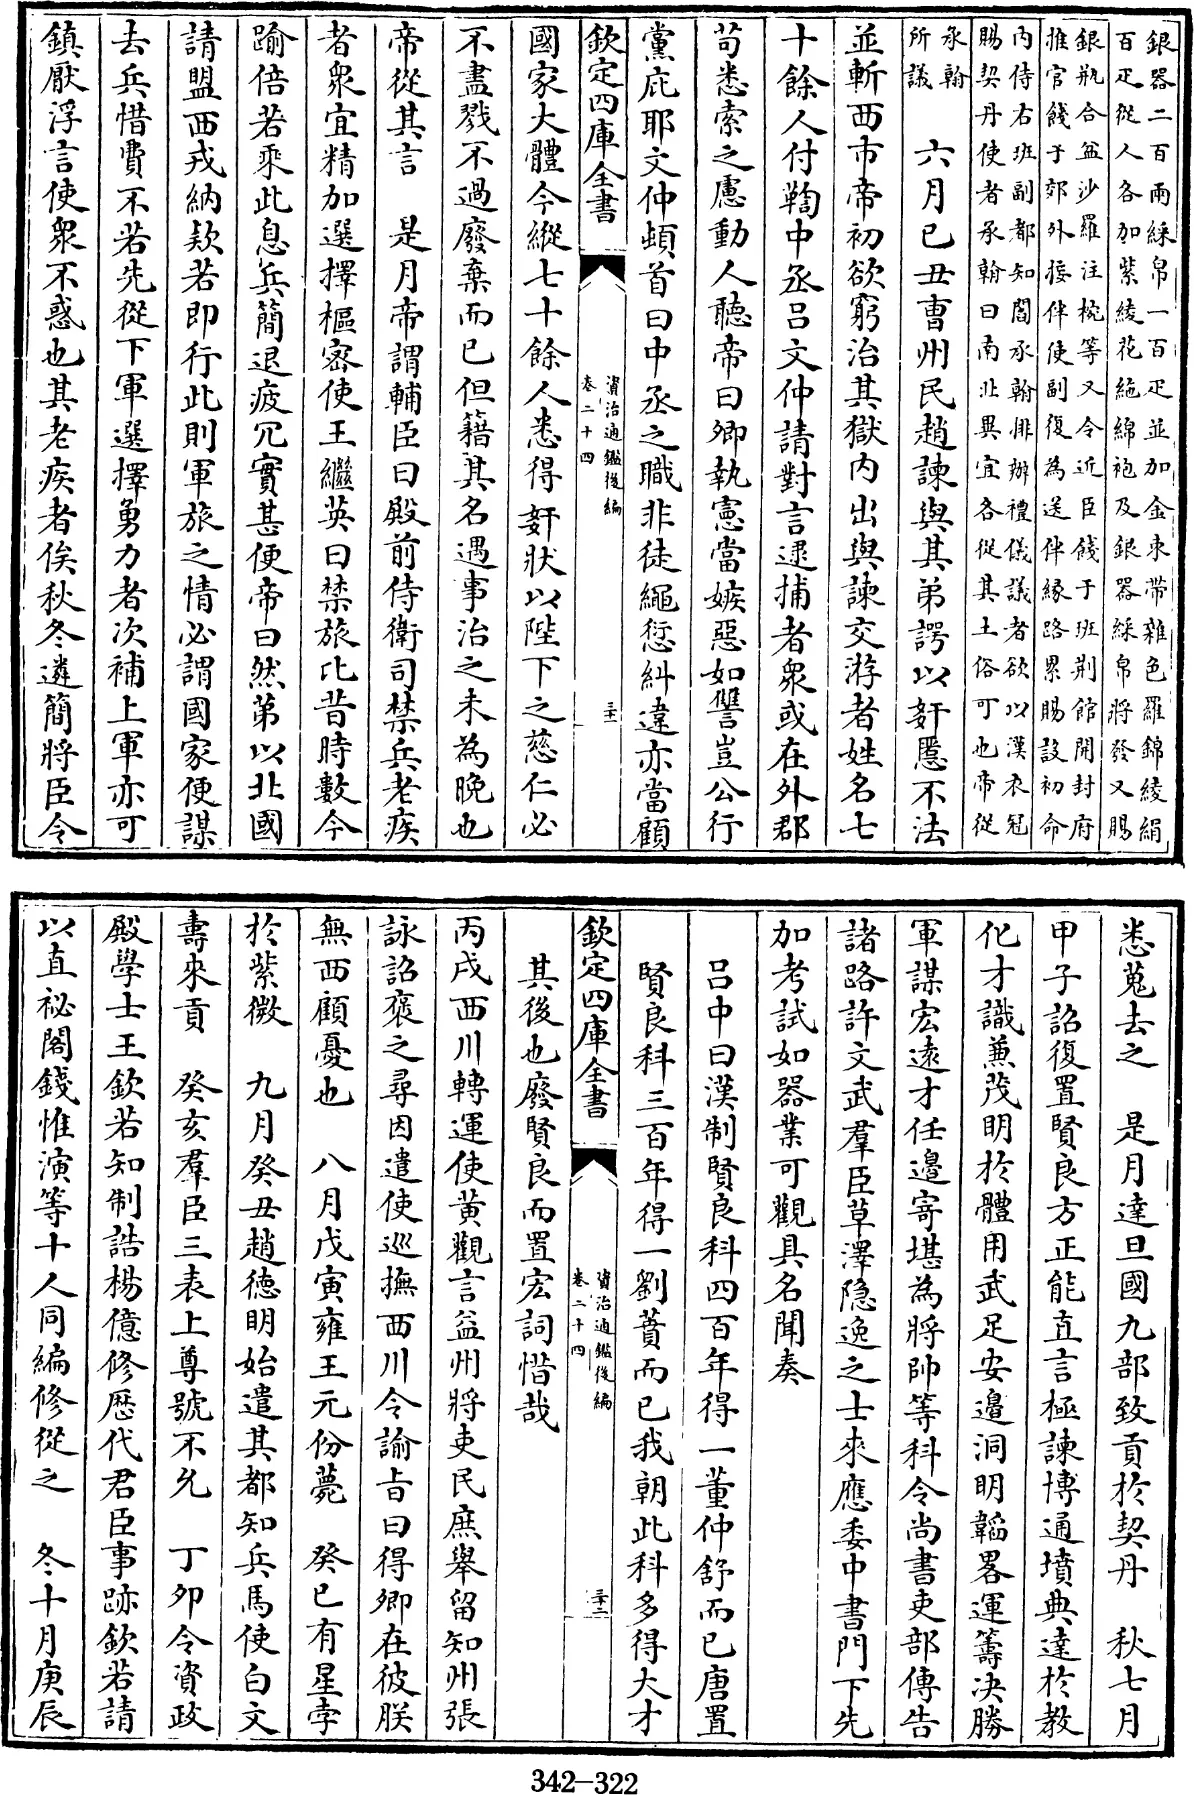 銀器二百兩綵帛一百疋並加金束帶雜色羅錦綾絹
百疋從人各加紫綾花絁綿袍及銀器綵帛將發又賜
銀瓶合盆沙羅注椀等又令近臣餞于班荆館開封府
推官餞于郊外接伴使副復為送伴緣路累賜設初命
内侍右班副都知閻承翰排辦禮儀議者欲以漢衣冠
賜契丹使者承翰曰南北異宜各從其土俗可也帝從
承翰
所議
六月己丑曹州民趙諫與其弟諤以奸慝不法
並斬西市帝初欲窮治其獄内出與諫交游者姓名七
十餘人付鞫中丞吕文仲請對言逮捕者衆或在外郡
苟悉索之慮動人聽帝曰卿執憲當嫉惡如讐豈公行
黨庇耶文仲頓首曰中丞之職非徒繩愆糾違亦當顧
欽定四庫全書
資治通鑑後編
卷二十四
三十一
國家大體今縱七十餘人悉得奸狀以陛下之慈仁必
不盡戮不過廢棄而已但籍其名遇事治之未為晚也
帝從其言 是月帝謂輔臣曰殿前侍衛司禁兵老疾
者衆宜精加選擇樞密使王繼英曰禁旅比昔時數今
踰倍若乘此息兵簡退疲冗實甚便帝曰然弟以北國
請盟西戎納欵若即行此則軍旅之情必謂國家便謀
去兵惜費不若先從下軍選擇勇力者次補上軍亦可
鎮厭浮言使衆不惑也其老疾者俟秋冬遴簡將臣令
悉蒐去之 是月達旦國九部致貢於契丹 秋七月
甲子詔復置賢良方正能直言極諫博通墳典達於教
化才識兼茂明於體用武足安邊洞明韜畧運籌决勝
軍謀宏遠才任邊寄堪為將帥等科令尚書吏部傳告
諸路許文武羣臣草澤隐逸之士來應委中書門下先
加考試如器業可觀具名聞奏
吕中曰漢制賢良科四百年得一董仲舒而已唐置
賢良科三百年得一劉蕡而已我朝此科多得大才
欽定四庫全書
資治通鑑後編
卷二十四
三十二
其後也廢賢良而置宏詞惜哉
丙戌西川轉運使黄觀言益州將吏民庶舉留知州張
詠詔褒之尋因遣使巡撫西川令諭旨曰得卿在彼朕
無西顧憂也 八月戊寅雍王元份薨 癸巳有星孛
於紫微 九月癸丑趙德明始遣其都知兵馬使白文
壽來貢 癸亥羣臣三表上尊號不允 丁卯令資政
殿學士王欽若知制誥楊億修歷代君臣事跡欽若請
以直祕閣錢惟演等十人同編修從之 冬十月庚辰
342-322